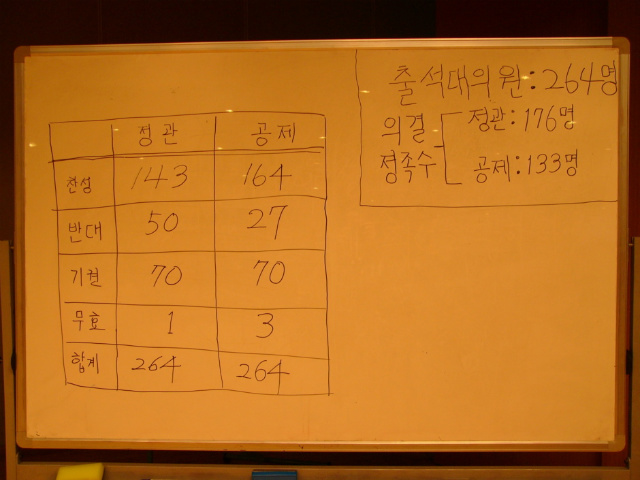 정관 공제
찬성 143 164
반대 50 27
기권 70 70
무효 1 3
합계 264 264
출석대의원: 264명
의결 정족수
정관: 176명
공제: 133명